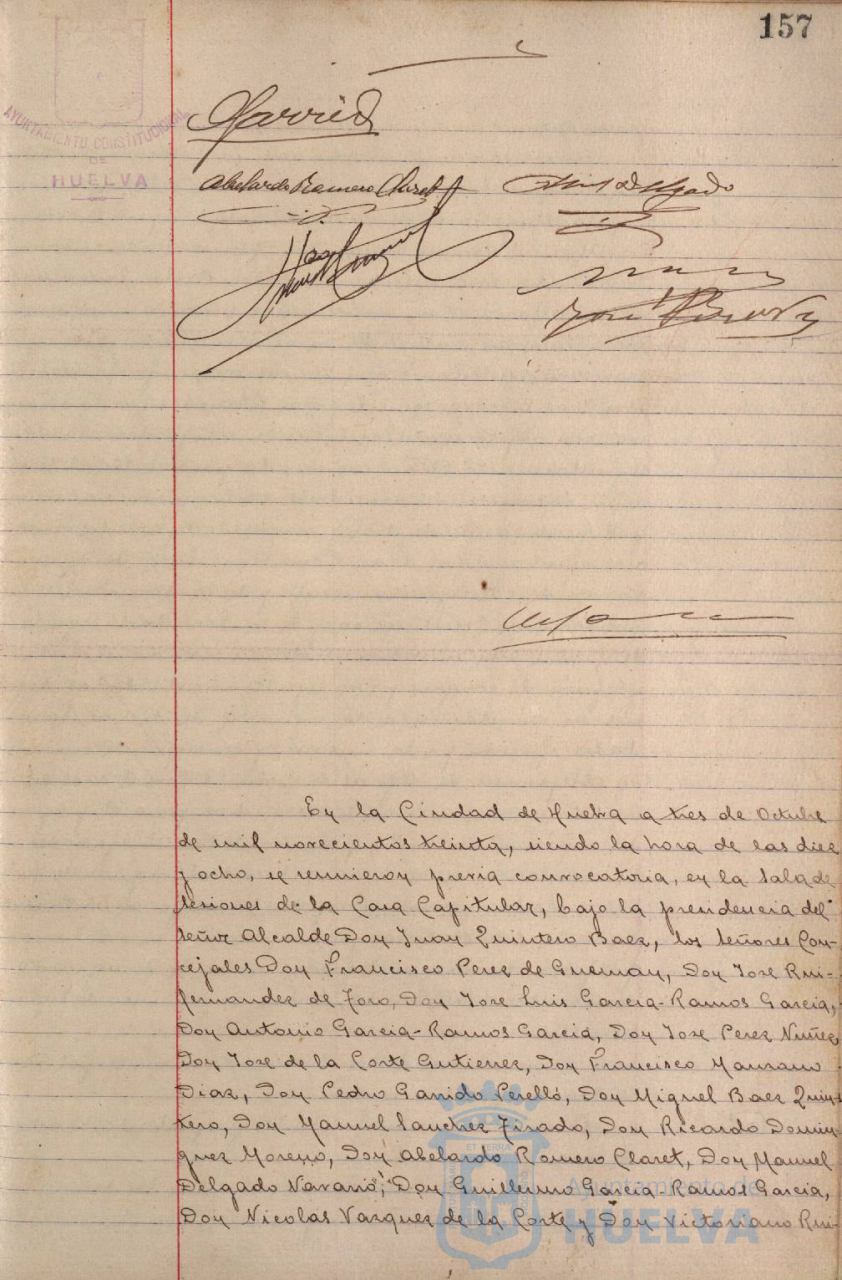 157
AYUNTAMIENTO CONSTITUCIONAL
DE
HUELVA
Garrido
Abelardo Romero Claret
En la Ciudad de Huelva a tres de Octubre
de mil novecientos treinta, siendo la hora de las diez
y ocho, se reunieron previa convocatoria, en la Sala de
sesiones de la Casa Capitular, bajo la presidencia del
señor Alcalde Don Juan Quintero Baez, los señores Con-
cejales Don Francisco Perez de Guzman, Don Jose Rui-
fernandez de Toro, Don Jose Luis Garcia-Ramos Garcia,
Don Antonio Garcia-Ramos Garcia, Don Jose Perez Nuñez
Don Jose de la Corte Gutierrez, Don Francisco Manzano
Diaz, Don Pedro Garrido Perelló, Don Miguel Baez Quin-
tero, Don Manuel Sanchez Tirado, Don Ricardo Domin
guez Moreno, Don Abelardo Romero Claret, Don Manuel
Delgado Navarro, Don Guillermo Garcia-Ramos Garcia,
Don Nicolas Vazquez de la Corte y Don Victoriano Rui-
Ayuntamiento de
HUELVA